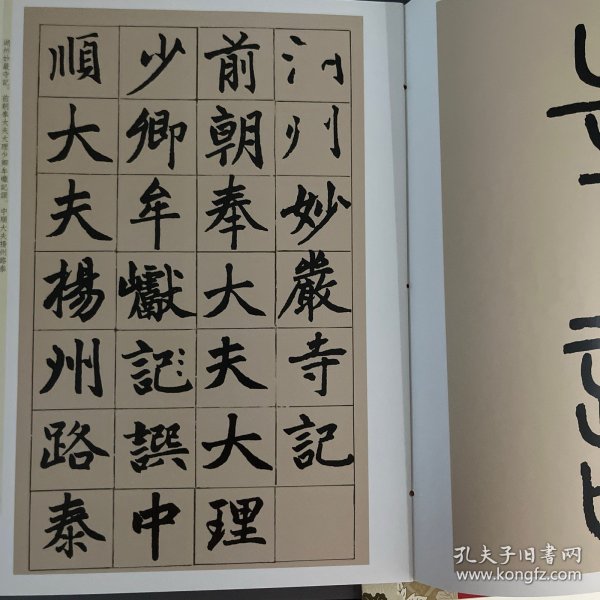 湖州妙嚴寺記
前朝奉大夫大理
少卿牟巘記譔中
順大夫揚州路泰
湖州妙嚴寺記。前朝奉大夫大理少卿牟巘記譔。中順大夫揚州路泰
孔夫子旧书网
www.kongfz.com